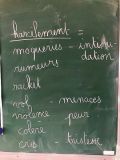 harcelement =
moqueries - intimi-
rumeurs dation
racket
vol - menaces
violence peur
colère
cris tristesse